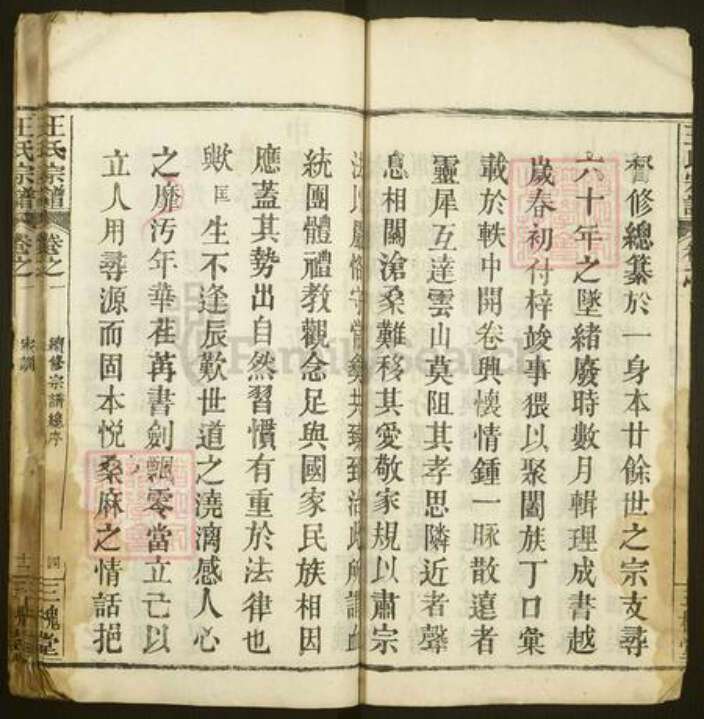 督修總纂於一身本廿餘世之宗支尋
六十年之墜緒廢時數月輯理成書越
歲春初付梓竣事猥以聚闔族丁口彙
載於軼中開卷興懷情鍾一脉散遠者
靈犀互達雲山莫阻其孝思隣近者聲
息相關滄桑難移其愛敬家規以肅宗
統團體禮教觀念足與國家民族相因
應蓋其勢出自然習慣有重於法律也
歟匡生不逢辰歎世道之澆漓感人心
之靡汚年華荏苒書劍飄零當立己以
立人用尋源而固本悦桑麻之情話挹
王氏宗譜 卷之一 續修宗譜總序 四 三槐堂
王氏宗譜 卷之一 家訓 十二
FamilySearch